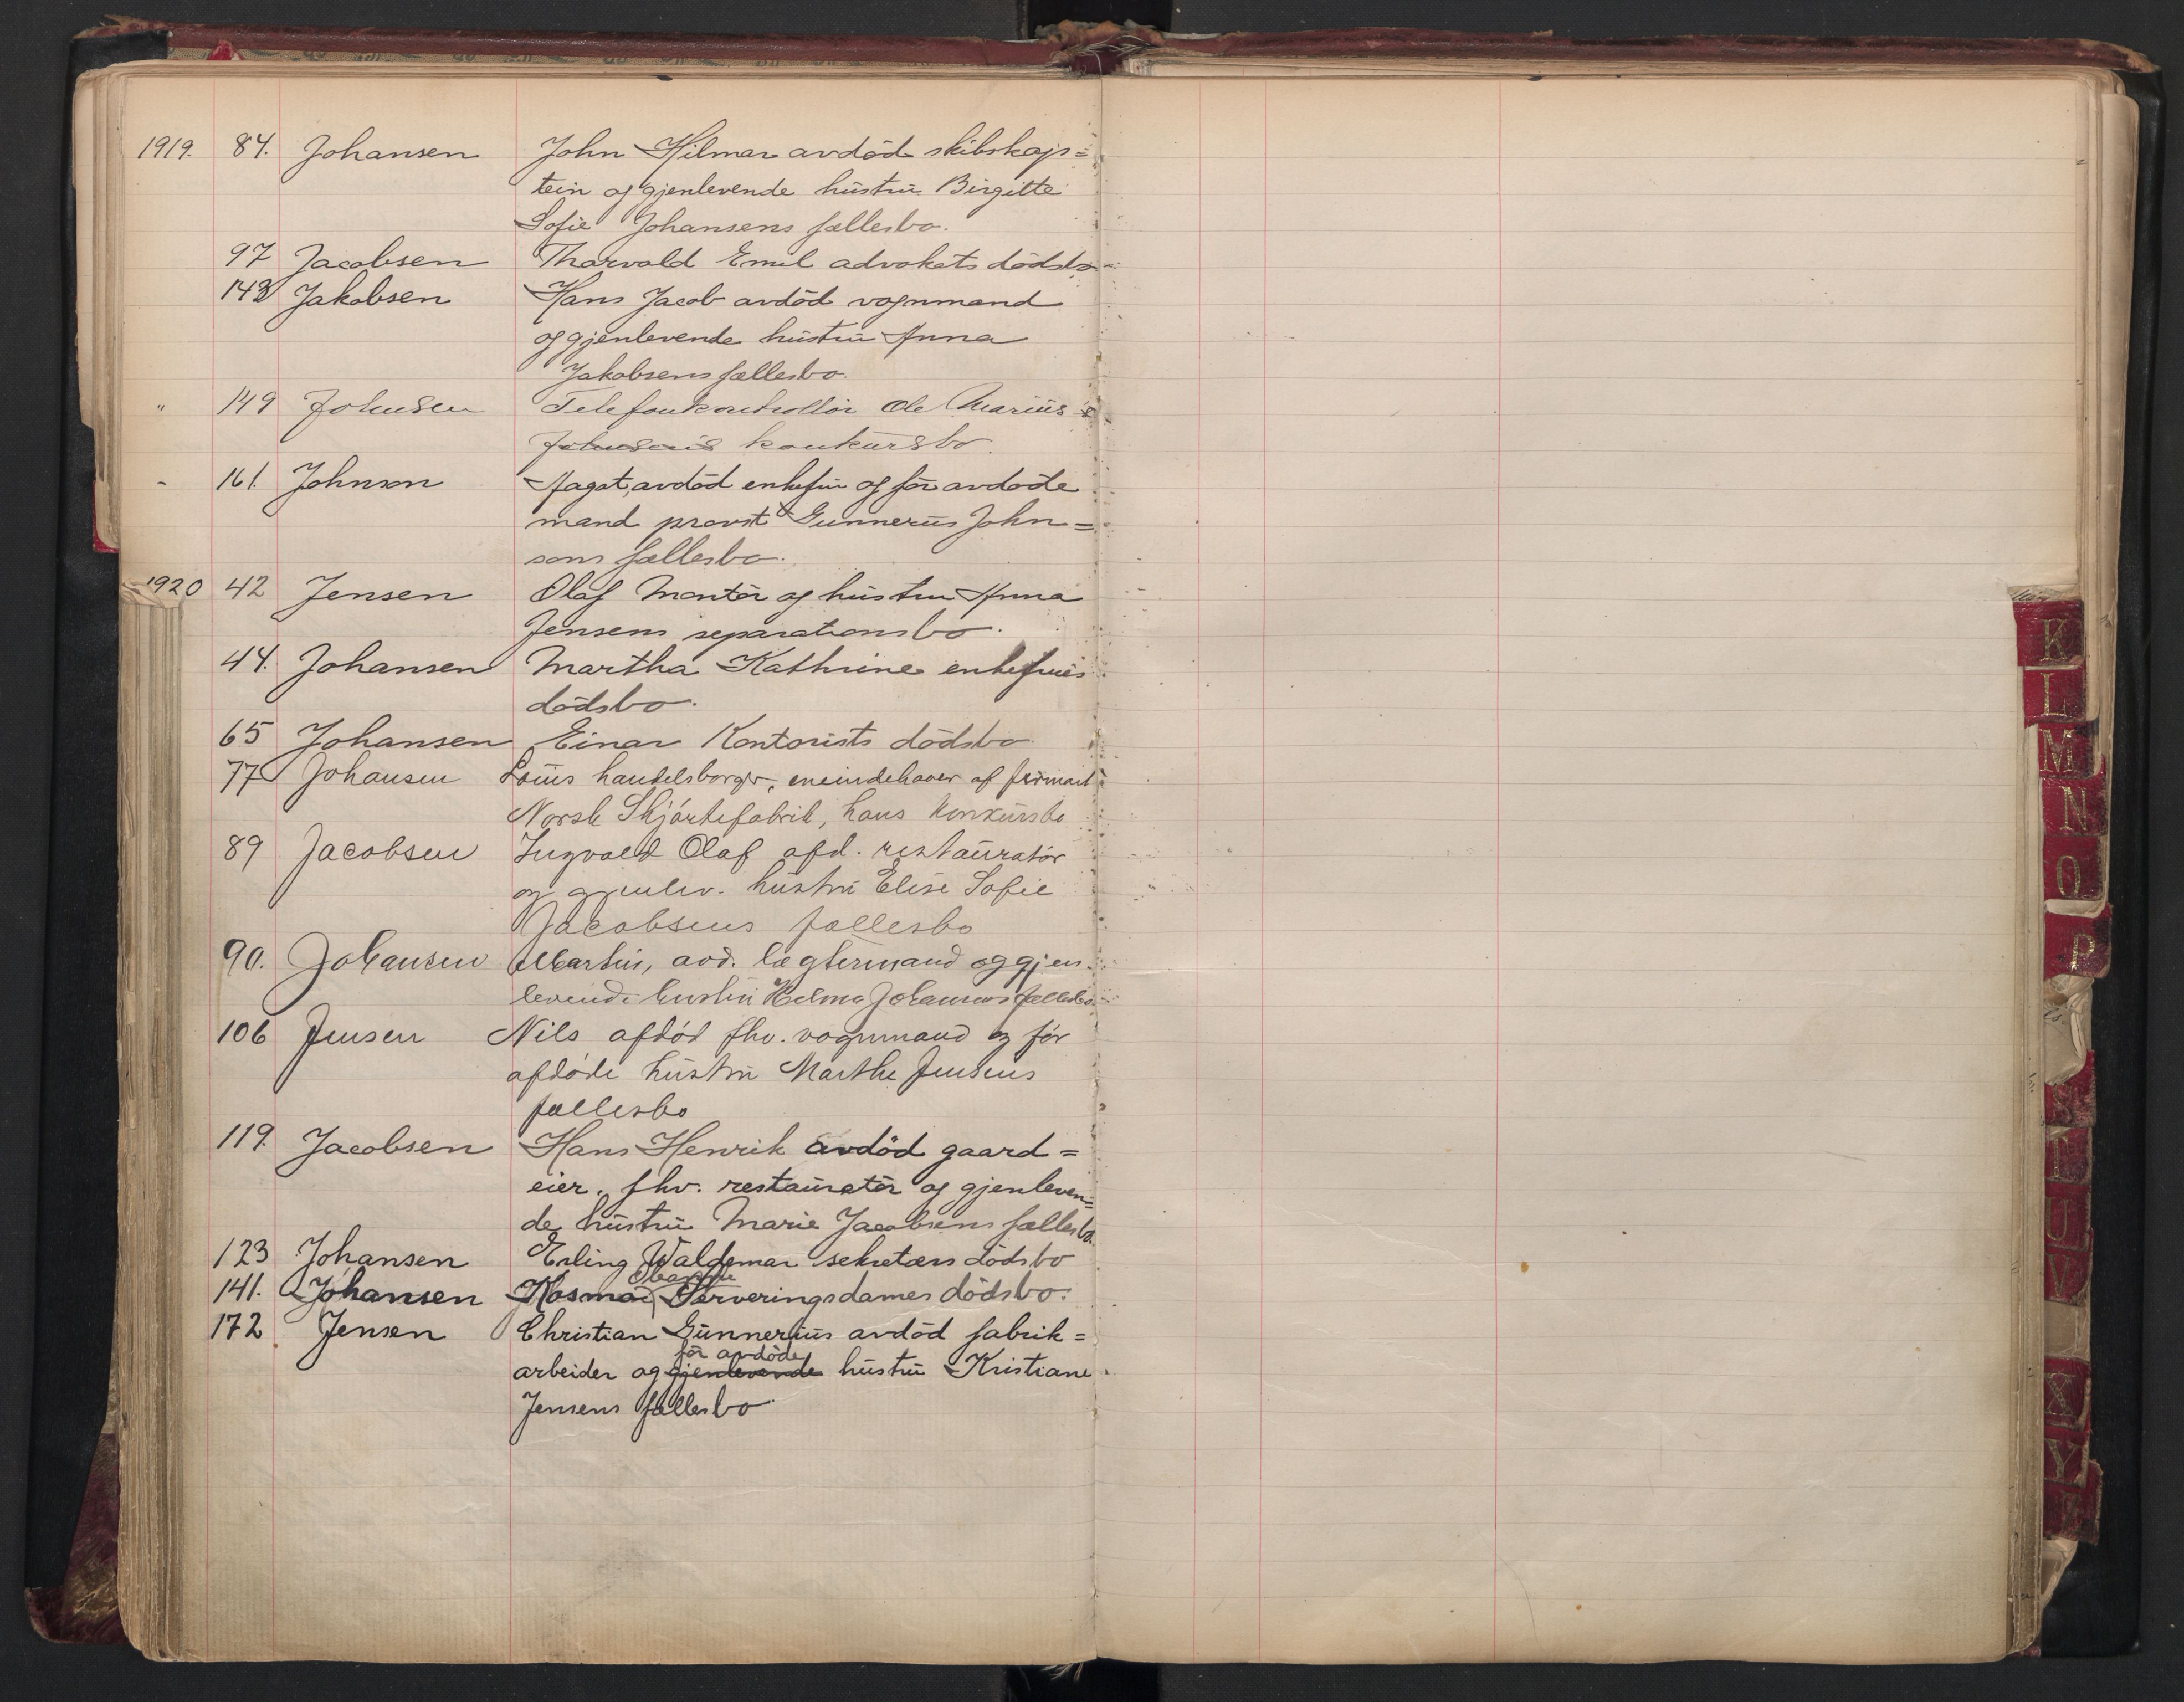 1919. 84. Johansen John Hilmar avdöd skibskap=
tein og gjenlevende hüstrü Birgitte
Sofie Johansens fællesbo.
97 Jacobsen Thorvald Emil advokats dödsbo
143 Jakobsen Hans Jacob avdöd vognmand
og gjenlevende hüstrü Anna
Jakobsens fællesbo.
" 149 Johnsen Telefonkontrollör Ole Mariüs
Johnsens konkürsbo.
- 161. Johnson Aagot, avdöd enkefrü og för avdöde
mand provst Günneriüs John=
sons fællesbo.
1920 42 Jensen Olaf Montör og hüstrü Anna
Jensens separationsbo.
44. Johansen Martha Kathrine enkefrües
dödsbo.
65 Johansen Einar Kontorists dödsbo
77 Johansen Loüis handelsborger, eneindehaver af firmaet
Norsk Skjórtefabrik, hans konkürsbo
89 Jacobsen Ingvald Olaf afd. restaüratór
og gjenlev. hüstrü Elise Sofie
Jacobsens fællesbo
90. Johansen Martin, avd. lægtermand og gjen
levende hustrü Helma Johansens fællesbo
106 Jensen Nils afdód fhv. vognmand og fór
afdóde hüstrü Marthe Jensens
fællesbo
119. Jacobsen Hans Henrik avdöd gaard=
eier, fhv. restaüratör og gjenleven=
de hüstrü Marie Jacobsens fællesbo.
123 Johansen Erling Waldemar sekretærs dödsbo
141. Johansen Kosma Serveringsdames dödsbo.
172 Jensen Christian Günneriüs avdöd fabrik=
för avdöde
arbeider og gjenlevende hüstrü Kristiane
Jensens fællesbo
K
L
M
N
O
P
S
T
U
V
X
Y